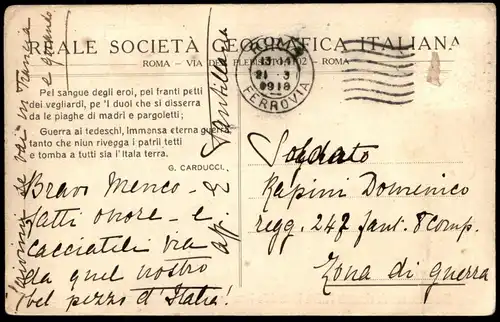 REALE SOCIETÀ GEOGRAFICA ITALIANA
ROMA - VIA DEL PLEBISCITO 102 - ROMA
ROMA
13-14
21 3
1918
FERROVIA
Pel sangue degli eroi, pei franti petti
dei vegliardi, pe 'l duol che si disserra
da le piaghe di madri e pargoletti;
Guerra ai tedeschi, immensa eterna guerra,
tanto che niun rivegga i patrii tetti
e tomba a tutti sia l'Itala terra.
G. CARDUCCI.
Bravi Menco -
fatti onore - e
cacciateli via
da quel nostro
bel pezzo d'Italia!
se vai in Francia
e quando
aff. E Santillana
Soldato
Rapini Domenico
regg. 247 fant. 8 comp.
Zona di guerra